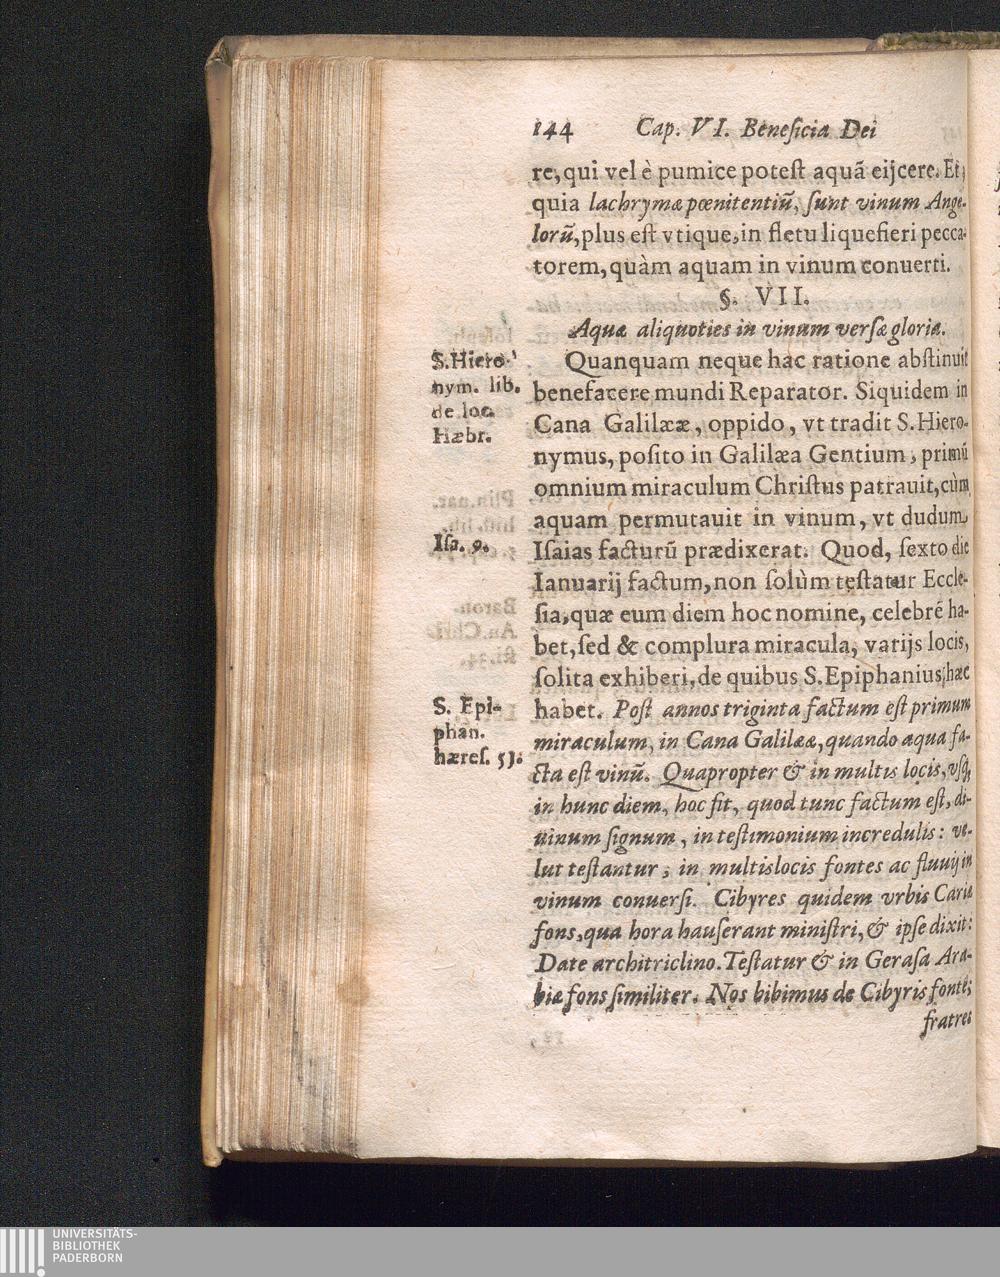 144 Cap. VI. Beneficia Dei
re, qui vel è pumice potest aquã eijcere. Et,
quia lachrymæ pœnitentiũ, sunt vinum Ange-
lorũ, plus est vtique, in fletu liquefieri pecca-
torem, quàm aquam in vinum conuerti.
§. VII.
Aquæ aliquoties in vinum versæ gloria.
S. Hiero-
nym. lib.
de loc.
Hæbr.
Quanquam neque hac ratione abstinuit
benefacere mundi Reparator. Siquidem in
Cana Galilææ, oppido, vt tradit S. Hiero-
nymus, posito in Galilæa Gentium, primũ
omnium miraculum Christus patrauit, cùm
aquam permutauit in vinum, vt dudum
Isa. 9.
Isaias facturũ prædixerat. Quod, sexto die
Ianuarij factum, non solùm testatur Eccle-
sia, quæ eum diem hoc nomine, celebrẽ ha-
bet, sed & complura miracula, varijs locis,
solita exhiberi, de quibus S. Epiphanius, hæc
S. Epi-
phan.
hæres. 51.
habet. Post annos triginta factum est primum
miraculum, in Cana Galilææ, quando aqua fa-
cta est vinũ. Quapropter & in multis locis, vsq;
in hunc diem, hoc fit, quod tunc factum est, di-
uinum signum, in testimonium incredulis: ve-
lut testantur, in multis locis fontes ac fluuij in
vinum conuersi. Cibyres quidem vrbis Cariæ
fons, qua hora hauserant ministri, & ipse dixit:
Date architriclino. Testatur & in Gerasa Ara-
biæ fons similiter. Nos bibimus de Cibyris fonte,
fratres
UNIVERSITÄTS-
BIBLIOTHEK
PADERBORN